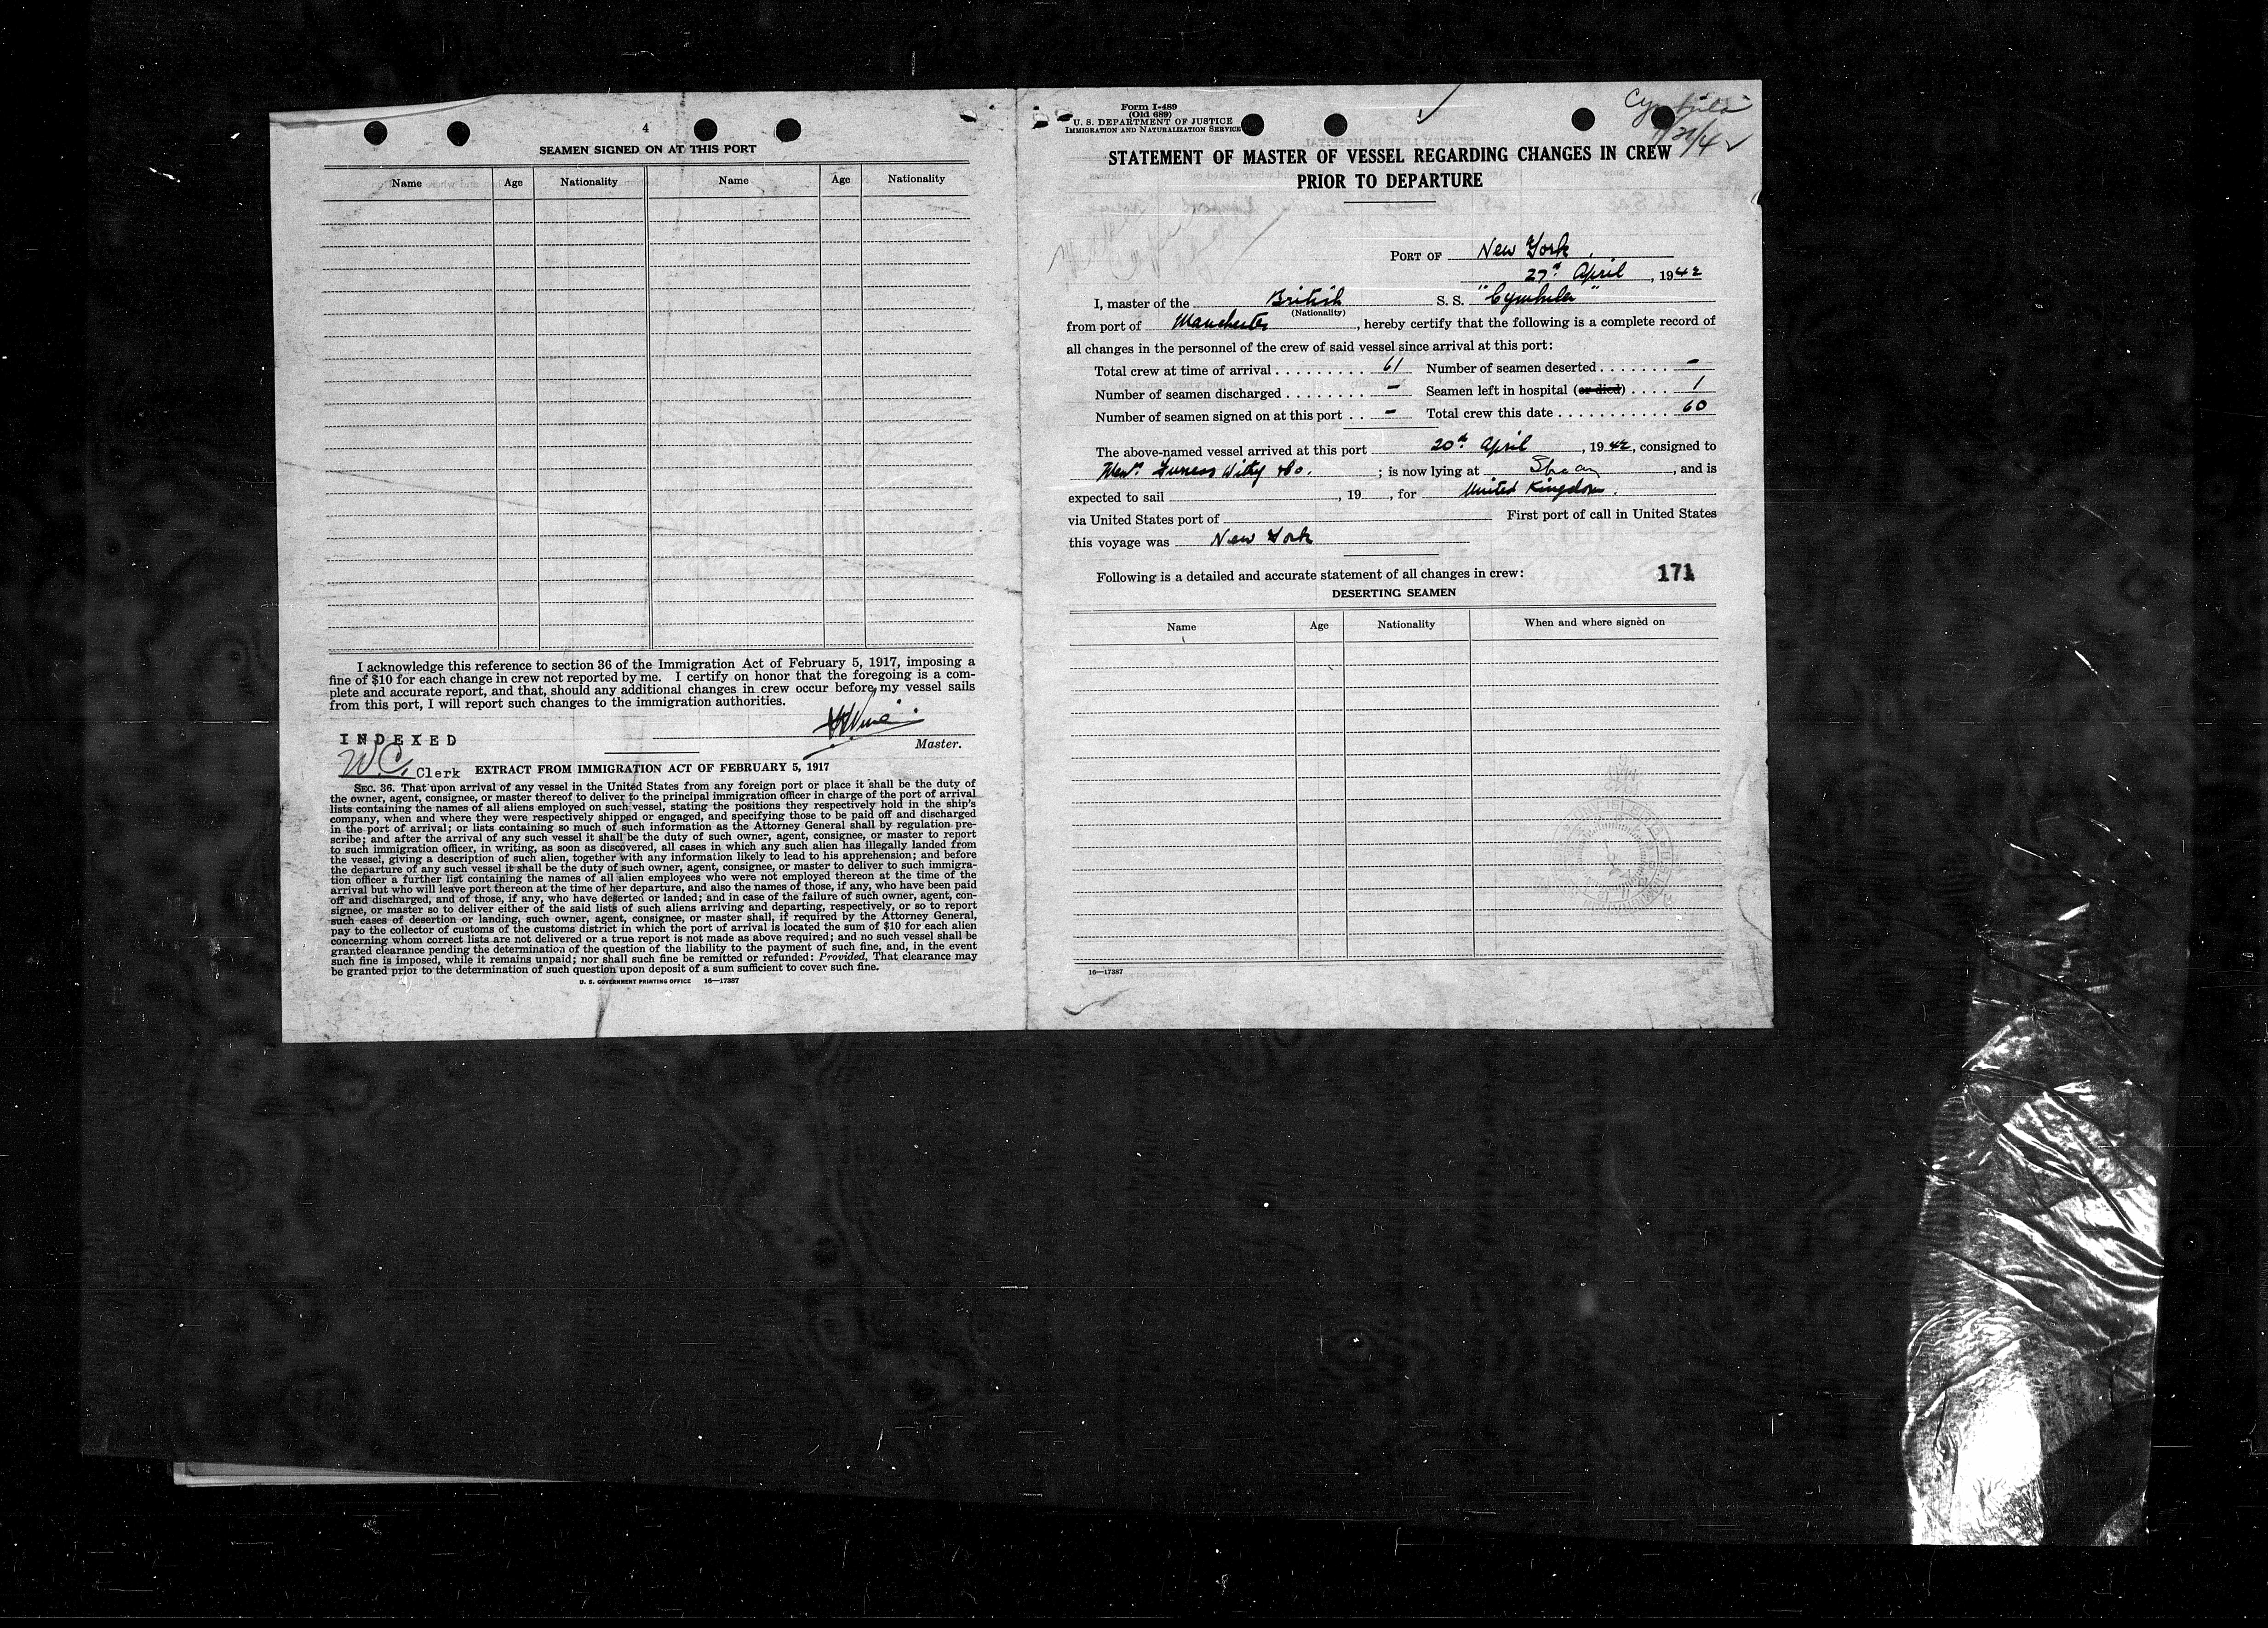 4
SEAMEN SIGNED ON AT THIS PORT
Name Age Nationality Name Age Nationality
I acknowledge this reference to section 36 of the Immigration Act of February 5, 1917, imposing a
fine of $10 for each change in crew not reported by me. I certify on honor that the foregoing is a com-
plete and accurate report, and that, should any additional changes in crew occur before my vessel sails
from this port, I will report such changes to the immigration authorities.
Master.
INDEXED
W.C. Clerk
EXTRACT FROM IMMIGRATION ACT OF FEBRUARY 5, 1917
SEC. 36. That upon arrival of any vessel in the United States from any foreign port or place it shall be the duty of
the owner, agent, consignee, or master thereof to deliver to the principal immigration officer in charge of the port of arrival
lists containing the names of all aliens employed on such vessel, stating the positions they respectively hold in the ship's
company, when and where they were respectively shipped or engaged, and specifying those to be paid off and discharged
in the port of arrival; or lists containing so much of such information as the Attorney General shall by regulation pre-
scribe; and after the arrival of any such vessel it shall be the duty of such owner, agent, consignee, or master to report
to such immigration officer, in writing, as soon as discovered, all cases in which any such alien has illegally landed from
the vessel, giving a description of such alien, together with any information likely to lead to his apprehension; and before
the departure of any such vessel it shall be the duty of such owner, agent, consignee, or master to deliver to such immigra-
tion officer a further list containing the names of all alien employees who were not employed thereon at the time of the
arrival but who will leave port thereon at the time of her departure, and also the names of those, if any, who have been paid
off and discharged, and of those, if any, who have deserted or landed; and in case of the failure of such owner, agent, con-
signee, or master so to deliver either of the said lists of such aliens arriving and departing, respectively, or so to report
such cases of desertion or landing, such owner, agent, consignee, or master shall, if required by the Attorney General,
pay to the collector of customs of the customs district in which the port of arrival is located the sum of $10 for each alien
concerning whom correct lists are not delivered or a true report is not made as above required; and no such vessel shall be
granted clearance pending the determination of the question of the liability to the payment of such fine, and, in the event
such fine is imposed, while it remains unpaid; nor shall such fine be remitted or refunded: Provided, That clearance may
be granted prior to the determination of such question upon deposit of a sum sufficient to cover such fine.
U. S. GOVERNMENT PRINTING OFFICE 16—17387
Form I-489
(Old 689)
U. S. DEPARTMENT OF JUSTICE
IMMIGRATION AND NATURALIZATION SERVICE
STATEMENT OF MASTER OF VESSEL REGARDING CHANGES IN CREW
PRIOR TO DEPARTURE
PORT OF New York
27th April, 1942
I, master of the British S. S. "Cymbula"
(Nationality)
from port of Manchester, hereby certify that the following is a complete record of
all changes in the personnel of the crew of said vessel since arrival at this port:
Total crew at time of arrival 61 Number of seamen deserted –
Number of seamen discharged – Seamen left in hospital (or died) 1
Number of seamen signed on at this port – Total crew this date 60
The above-named vessel arrived at this port 20th April, 1942, consigned to
Furness Withy & Co.; is now lying at , and is
expected to sail , 19 , for United Kingdom.
via United States port of First port of call in United States
this voyage was New York
Following is a detailed and accurate statement of all changes in crew: 171
DESERTING SEAMEN
Name Age Nationality When and where signed on
16—17387